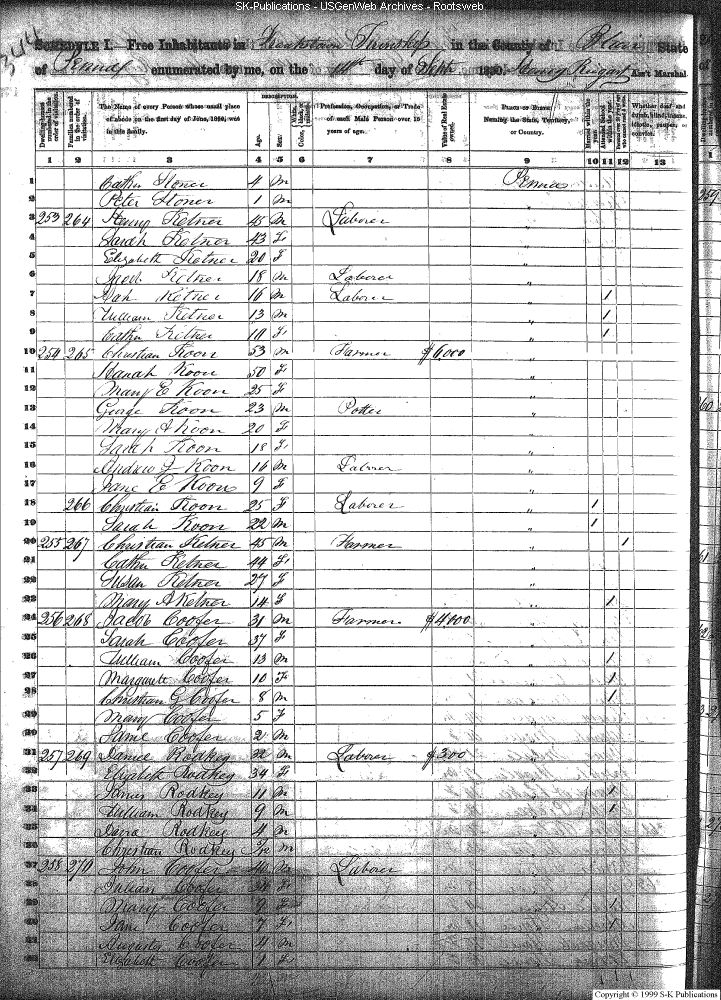 SK-Publications - USGenWeb Archives - Rootsweb
344
SCHEDULE I. Free Inhabitants in Township in the County of Blair State
of Penna enumerated by me, on the day of Sept 1850. Ass't Marshal.
Dwelling-houses numbered in the order of visitation.
Families numbered in the order of visitation.
The Name of every Person whose usual place of abode on the first day of June, 1850, was in this family.
DESCRIPTION.
Age.
Sex.
White, black, or mulatto.
Profession, Occupation, or Trade of each Male Person over 15 years of age.
Value of Real Estate owned.
PLACE OF BIRTH. Naming the State, Territory, or Country.
Married within the year.
Attended School within the year.
Persons over 20 y'rs of age who cannot read & write.
Whether deaf and dumb, blind, insane, idiotic, pauper, or convict.
1 2 3 4 5 6 7 8 9 10 11 12 13
1 Cathn Stoner 4 m Penna
2 Peter Stoner 1 m "
3 253 264 Henry Ketner 45 m Laborer "
4 Sarah Ketner 43 f "
5 Elizabeth Ketner 20 f "
6 Jacob Ketner 18 m Laborer "
7 Ketner 16 m Laborer " 1
8 William Ketner 13 m " 1
9 Cathn Ketner 11 f " 1
10 254 265 Christian Koon 53 m Farmer $6,000 "
11 Hanah Koon 50 f "
12 Mary E Koon 25 f "
13 George Koon 23 m Potter "
14 Mary A Koon 20 f "
15 Sarah Koon 18 f "
16 Andrew J Koon 16 m Laborer "
17 Jane E Koon 9 f "
18 266 Christian Koon 25 f Laborer " 1
19 Sarah Koon 22 m " 1
20 255 267 Christian Ketner 45 m Farmer " 1
21 Cathn Ketner 44 f "
22 Susan Ketner 27 f "
23 Mary A Ketner 14 f " 1
24 256 268 Jacob Coofer 31 m Farmer $4,000 "
25 Sarah Coofer 37 f "
26 William Coofer 13 m " 1
27 Margarett Coofer 10 f " 1
28 Christian G Coofer 8 m " 1
29 Mary Coofer 5 f "
30 Coofer 2 m "
31 257 269 Daniel Rodkey 32 m Laborer $300 "
32 Elizabeth Rodkey 34 f "
33 James Rodkey 11 m " 1
34 William Rodkey 9 m " 1
35 David Rodkey 4 m "
36 Christian Rodkey m "
37 258 270 John Coofer 40 m Laborer "
38 Julian Coofer f "
39 Mary Coofer 9 f " 1
40 Jane Coofer 7 f " 1
41 Augustus Coofer 4 m "
42 Elizabeth Coofer 1 f "
Copyright © 1999 S-K Publications